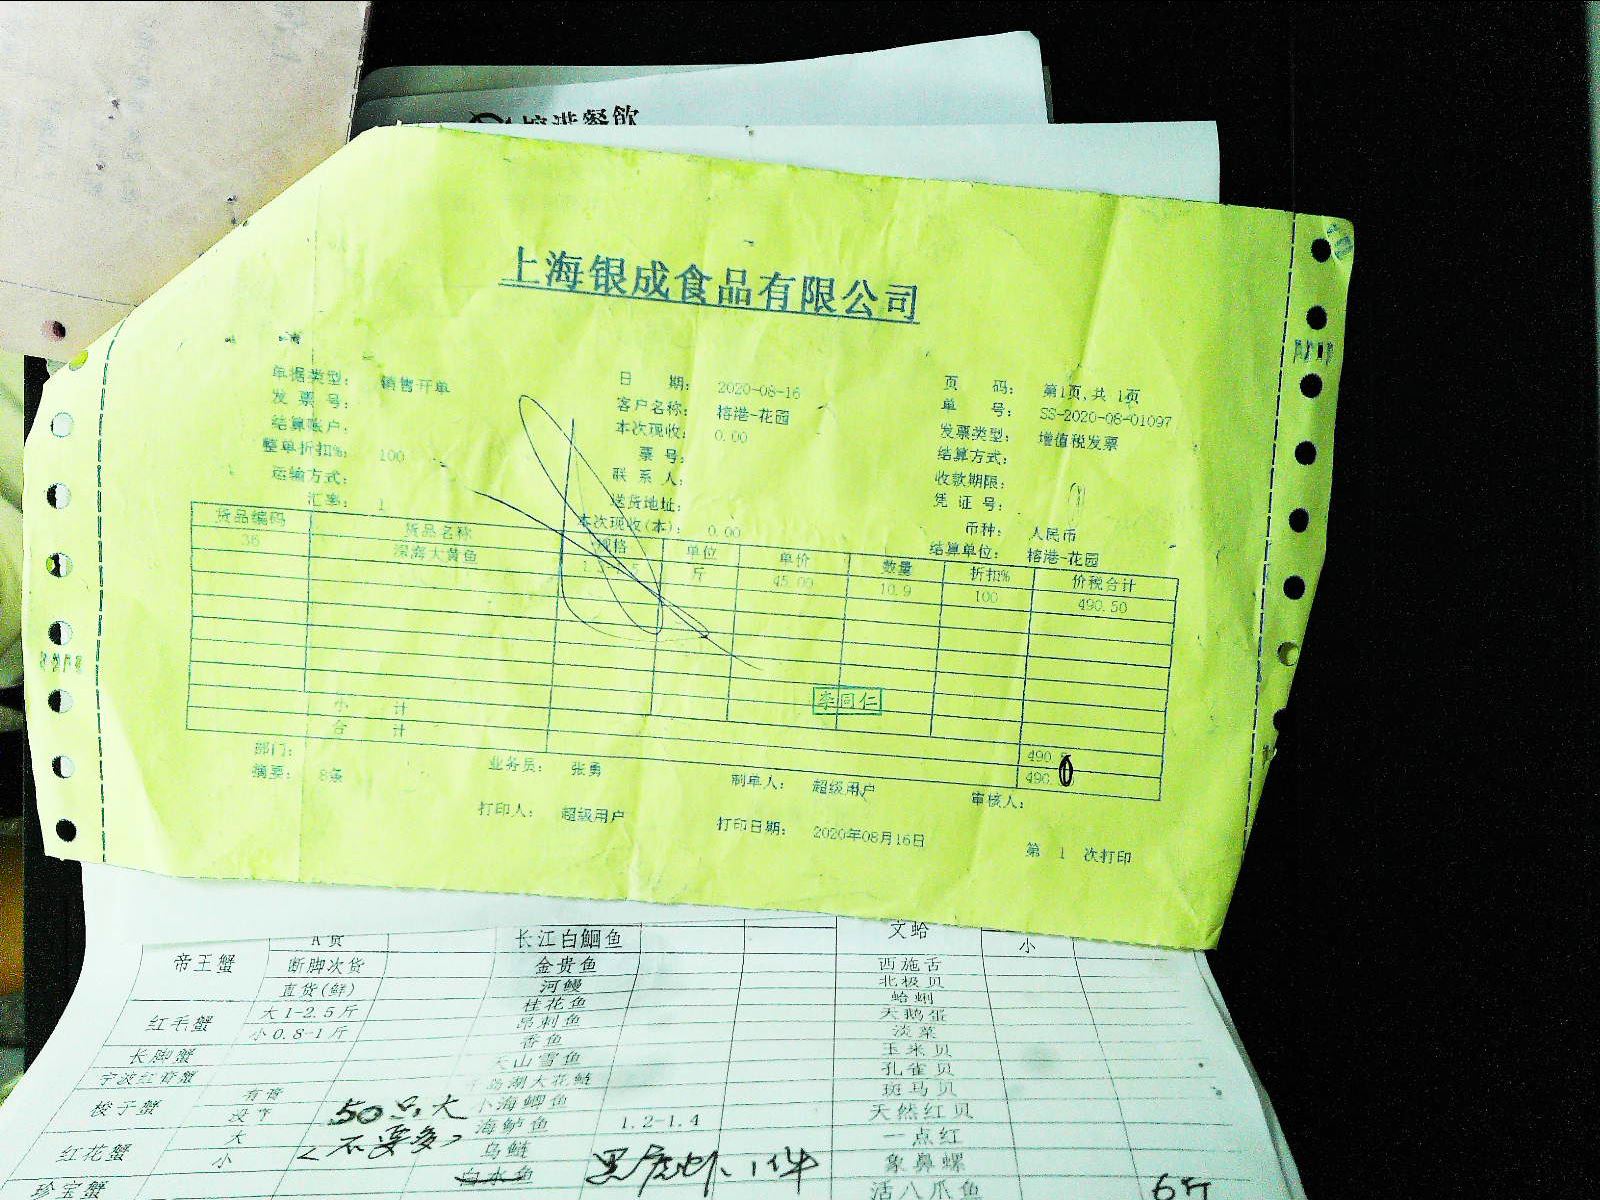 榕港餐飲
上海银成食品有限公司
单据类型: 销售开单 日 期: 2020-08-16 页 码: 第1页,共 1页
发 票 号: 客户名称: 榕港-花园 单 号: SS-2020-08-01097
结算账户: 本次现收: 0.00 发票类型: 增值税发票
整单折扣%: 100 票 号: 结算方式:
运输方式: 联 系 人: 收款期限:
汇率: 1 送货地址: 凭 证 号:
本次现收(本): 0.00 币种: 人民币
结算单位: 榕港-花园
货品编码 货品名称 规格 单位 单价 数量 折扣% 价税合计
36 深海大黄鱼 斤 45.00 10.9 100 490.50
李同仁
小 计 490
合 计 490.0
部门: 业务员: 张勇 制单人: 超级用户 审核人:
摘要: 8条
打印人: 超级用户 打印日期: 2020年08月16日 第 1 次打印
长江白鮰鱼 文蛤 小
帝王蟹 断脚次货 金贵鱼 西施舌
直货(鲜) 河鳗 北极贝
红毛蟹 大1-2.5斤 桂花鱼 蛤蜊
小0.8-1斤 昂刺鱼 天鹅蛋
长脚蟹 香鱼 淡菜
宁波红膏蟹 天山雪鱼 玉米贝
千岛湖大花鲢 孔雀贝
梭子蟹 有膏 斑马贝
50只大 海鲈鱼 1.2-1.4 天然红贝
红花蟹 大 <不要多> 乌鲢 一点红
小 白水鱼 黑虎虾、1件 象鼻螺
珍宝蟹 活八爪鱼 6斤